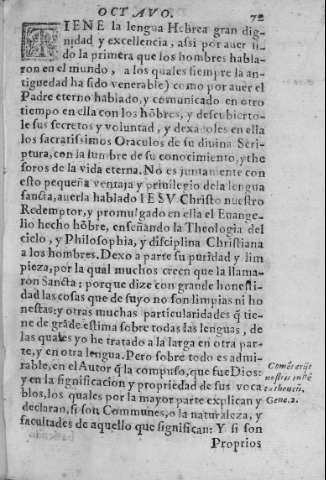 OCTAVO. 72
TIENE la lengua Hebrea gran dig-
nidad y excellencia, assi por auer si-
do la primera que los hombres habla-
ron en el mundo, a los quales siempre la an-
tiguedad ha sido venerable) como por auer el
Padre eterno hablado, y comunicado en otro
tiempo en ella con los hõbres, y descubierto-
le sus secretos y voluntad, y dexadoles en ella
los sacratissimos Oraculos de su diuina Scri-
ptura, con la lumbre de su conocimiento, y the
soros de la vida eterna. No es juntamente con
esto pequeña ventaja y priuilegio dela lengua
sancta, auerla hablado IESV Christo nuestro
Redemptor, y promulgado en ella el Euange-
lio hecho hõbre, enseñando la Theologia del
cielo, y Philosophia, y disciplina Christiana
a los hombres. Dexo a parte su puridad y lim
pieza, por la qual muchos creen que la llama-
ron Sancta; porque dize con grande honesti-
dad las cosas que de suyo no son limpias ni ho
nestas: y otras muchas particularidades q̃ tie-
ne de grãde estima sobre todas las lenguas, de
las quales yo he tratado a la larga en otra par-
te, y en otra lengua. Pero sobre todo es admi-
rable, en el Autor q̃ la compuso, que fue Dios:
y en la significacion y propriedad de sus voca
blos, los quales por la mayor parte explican y
declaran, si son Communes, o la naturaleza, y
facultades de aquello que significan: Y si son
Proprios
nostris in
Gene. 2.